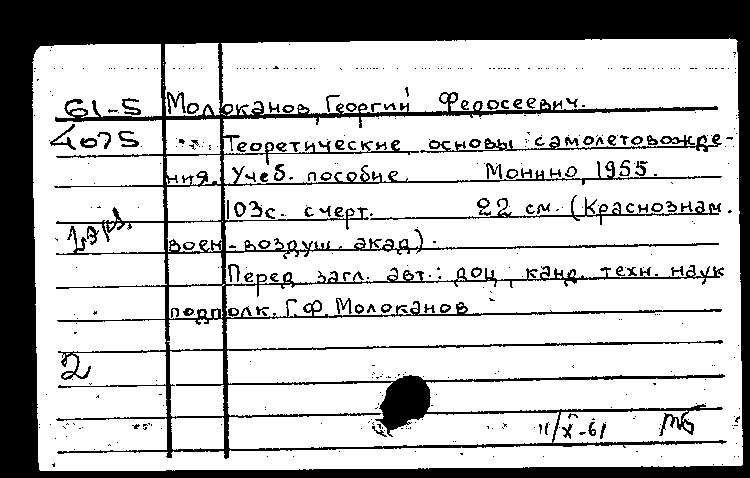 61-5 Молоканов, Георгий Федосеевич.
4075 Теоретические основы самолетовожде-
ния. Учеб. пособие. Монино, 1955.
103с. с черт. 22 см. (Краснознам.
воен-воздуш. акад).
Перед загл. авт.: доц, канд. техн. наук
подполк. Г.Ф. Молоканов
2
11/X-61